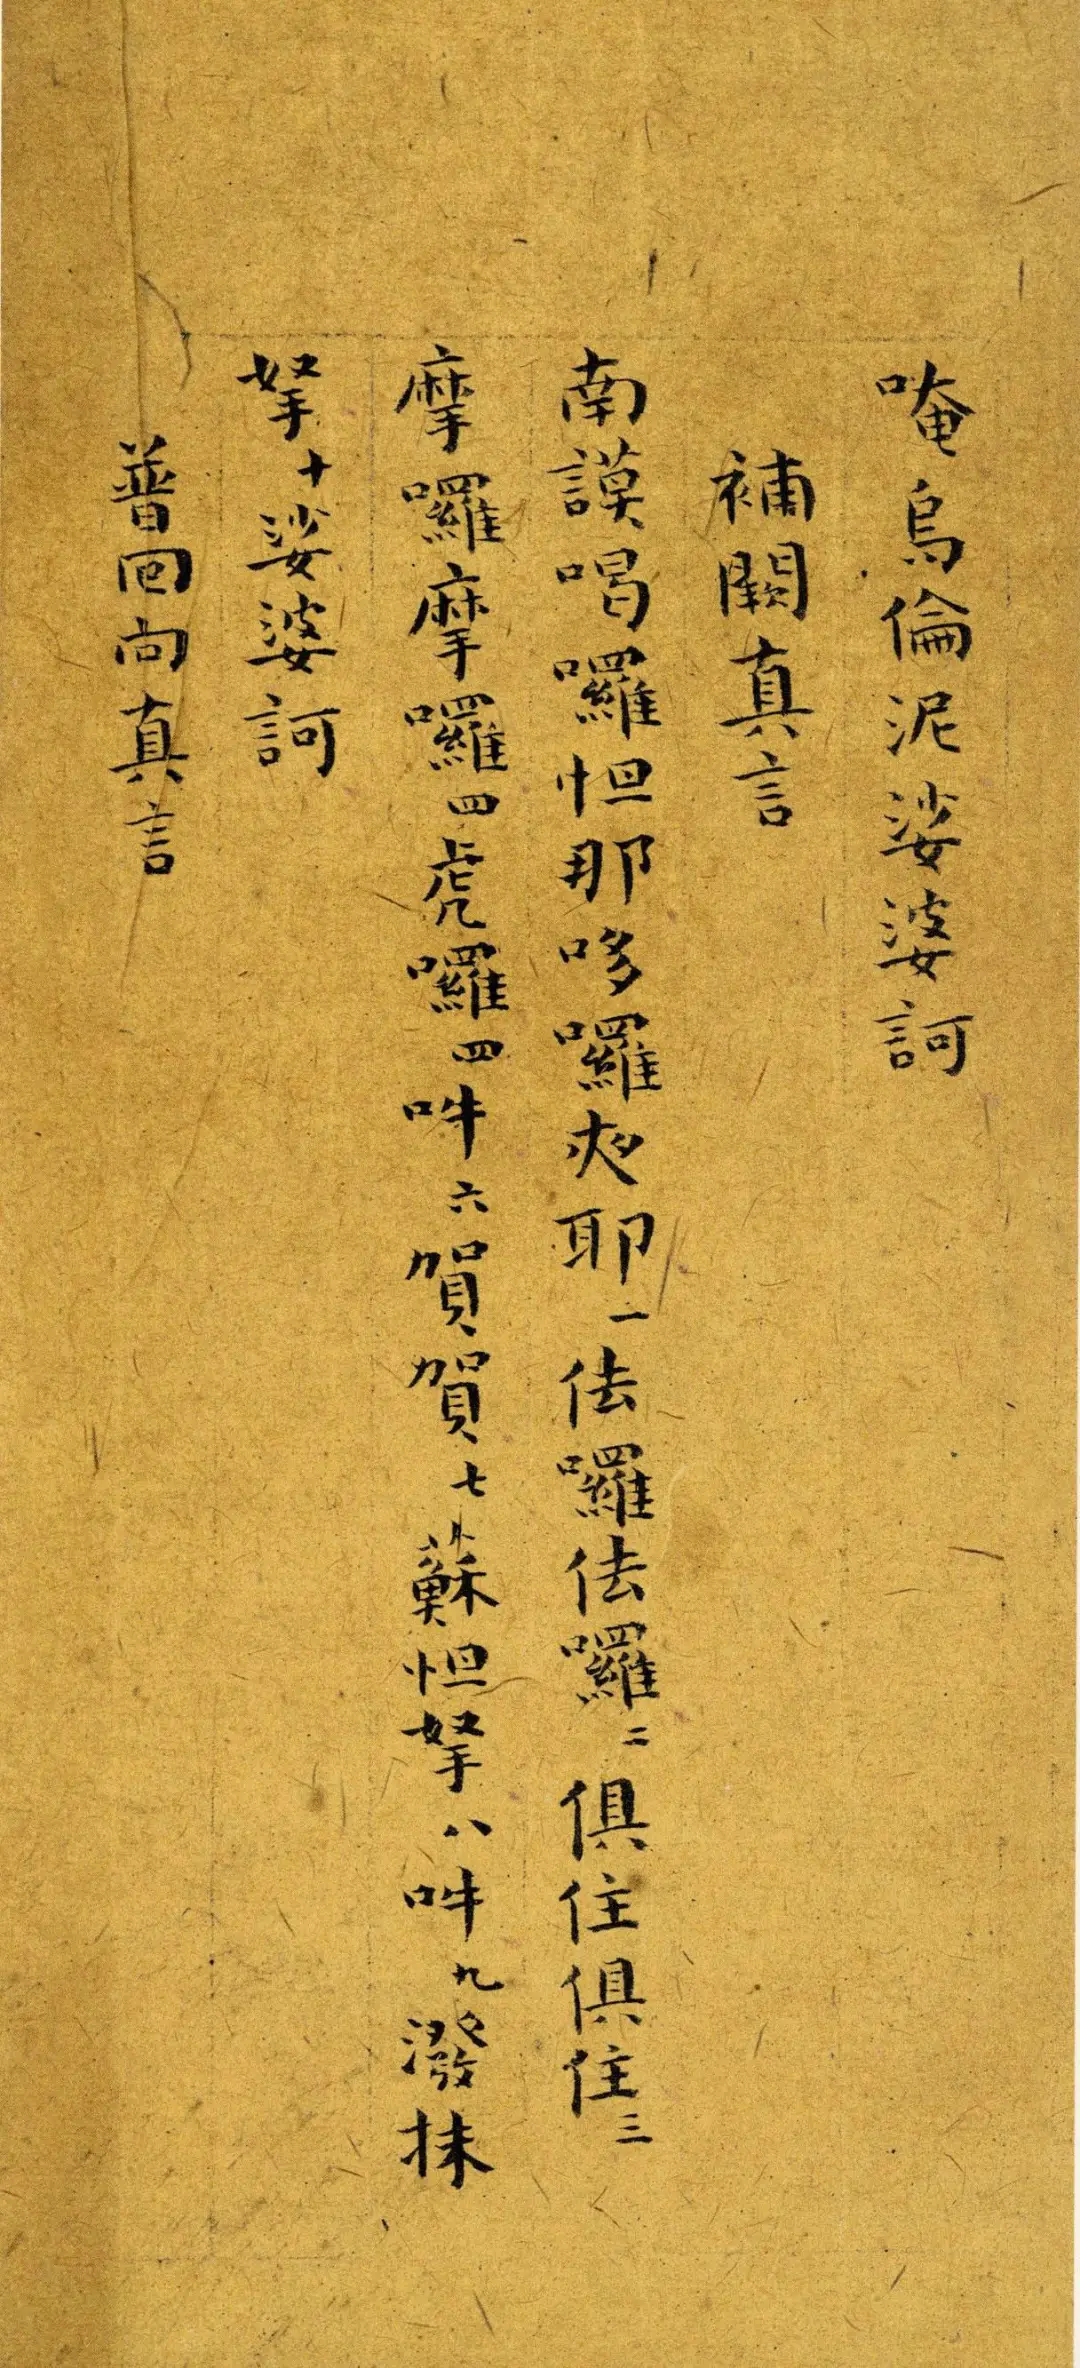 唵烏倫泥娑婆訶
補闕真言
南謨喝囉怛那哆囉夜耶一佉囉佉囉二俱住俱住三
摩囉摩囉四虎囉四吽六賀賀七蘇怛拏八吽九潑抹
拏十娑婆訶
普回向真言